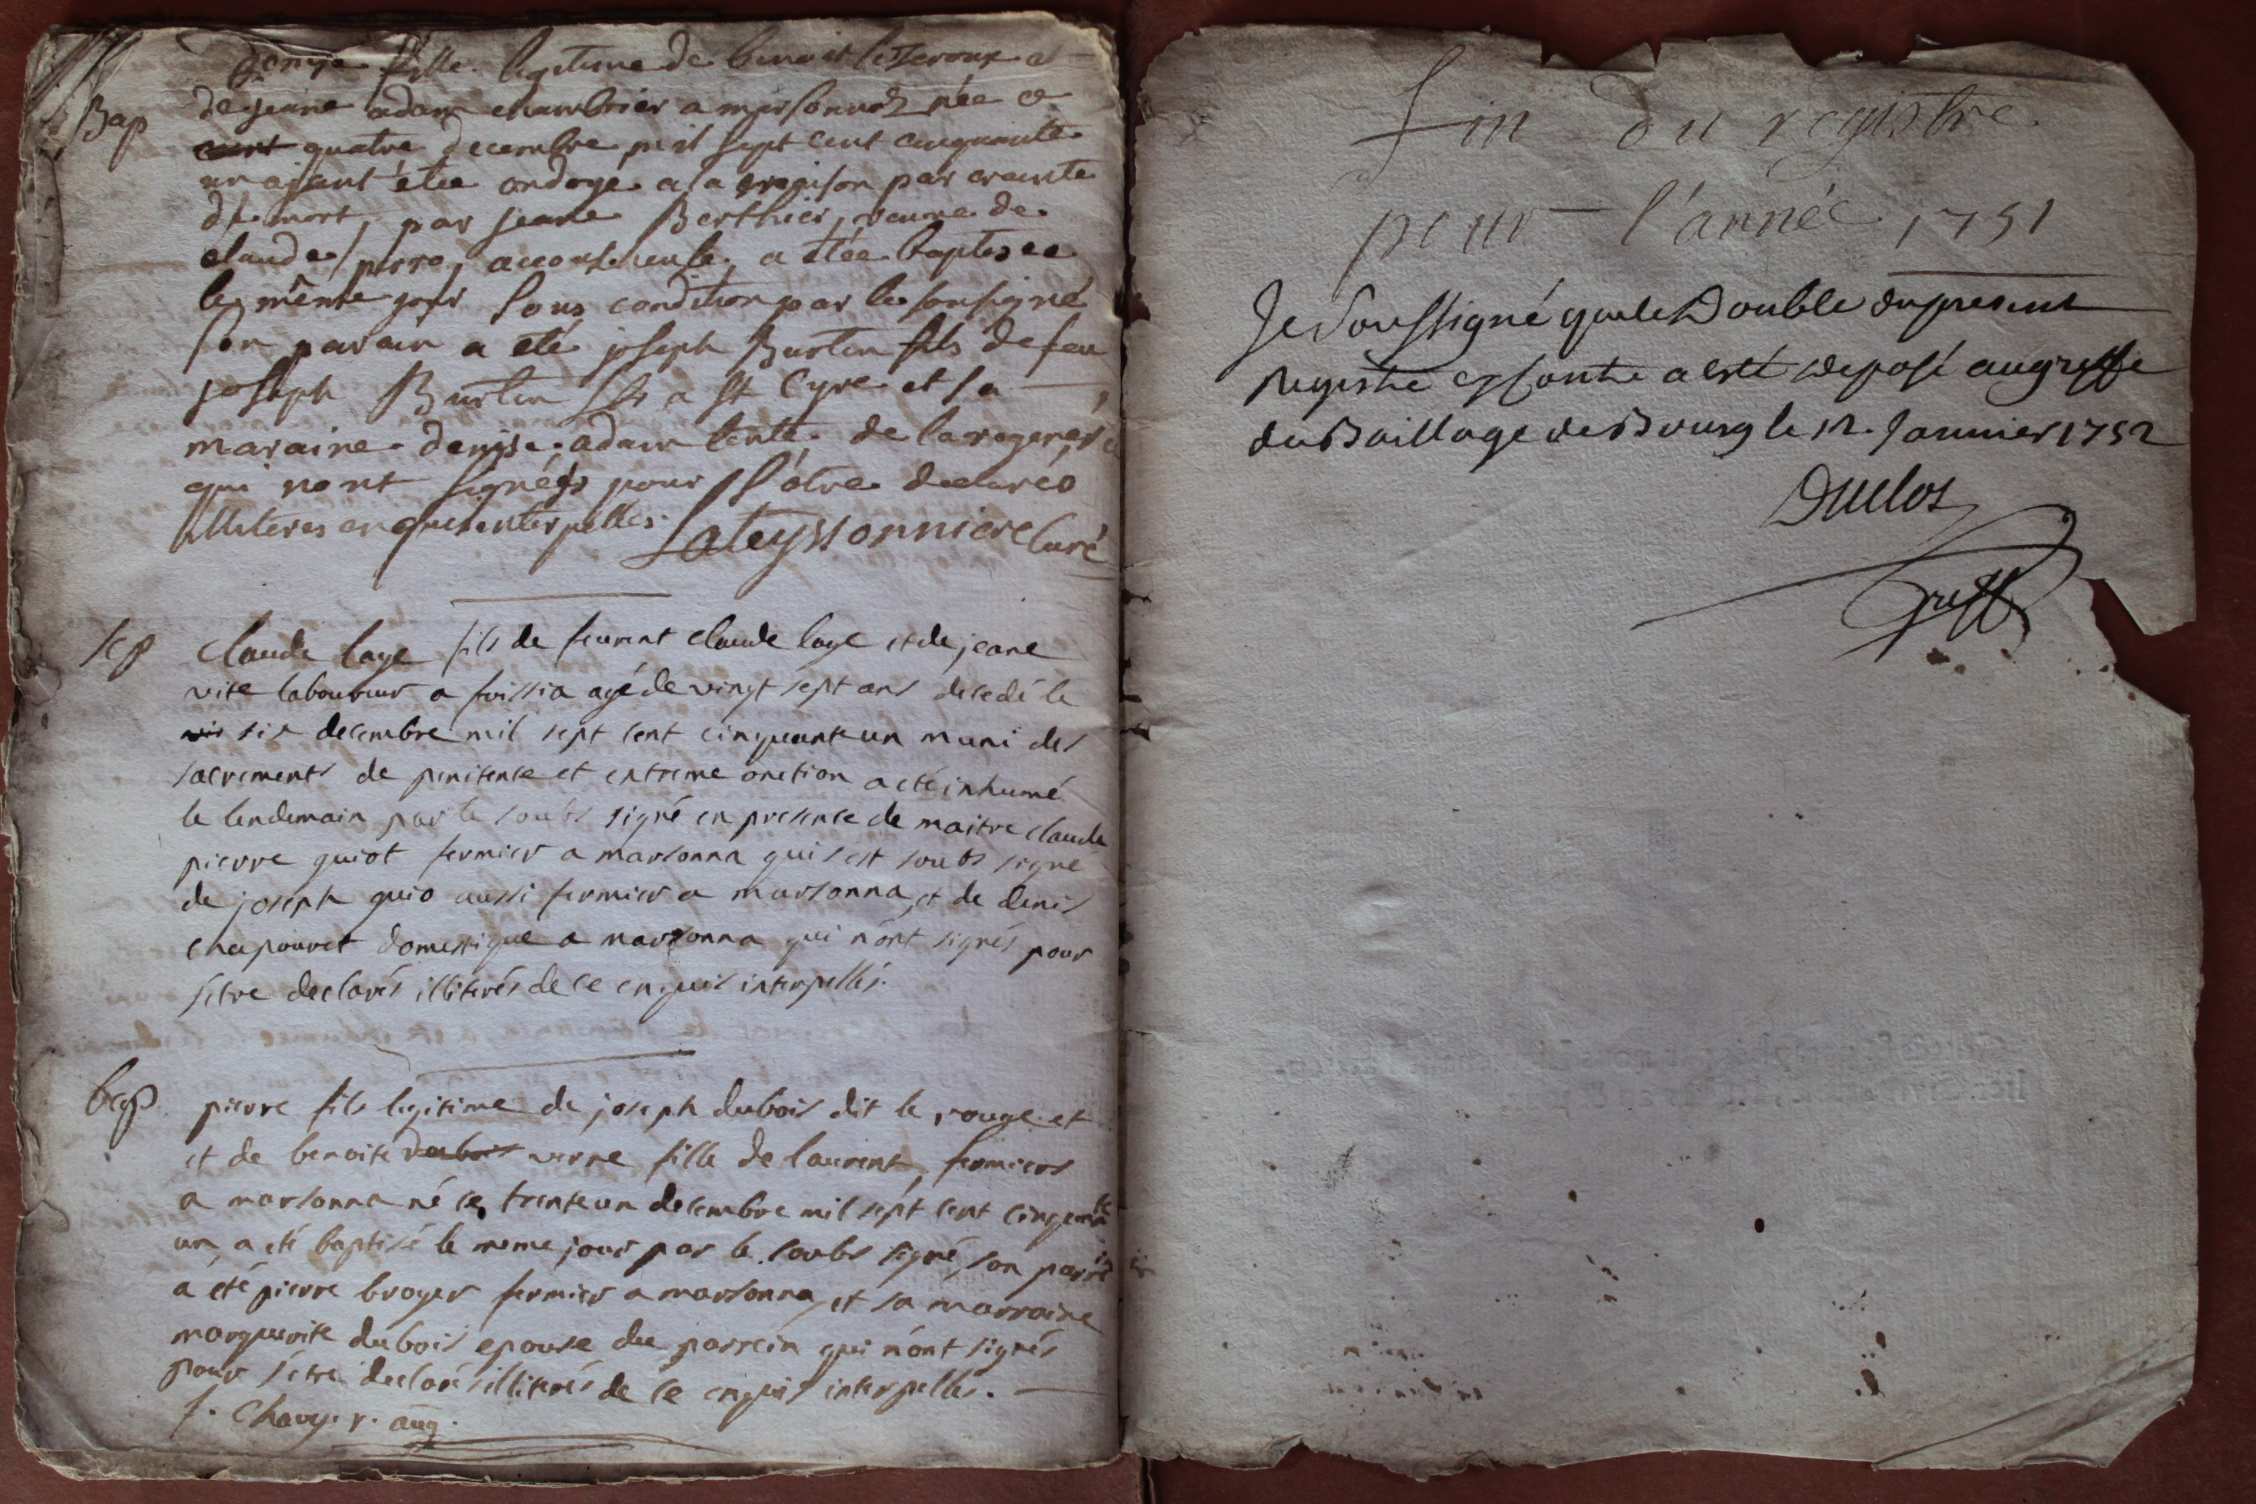 Denise fille legitime de benoit et
de jeane adam chambrier a marsonnaz née ce
quatre decembre mil sept cent cinquante
un ajant étée ondoyé a la maison par crainte
de mort, par jeane Berthier, veuve de
claude perre, accoucheuse, a étée baptisee
le même jour sous condition par le sousigné
son parain a eté joseph Burtin fils de feu
joseph Burtin a St Cyre et sa
maraine denise adam tente de la
qui nont signées pour s'être declarés
illiteres enquis interpelles. Lateyssonniere Curé
Bap
Sep
claude laye fils de feurent claude laye et de jeane
vite laboureur a foissia agé de vingt sept ans decedé le
six decembre mil sept cent cinquante un muni des
sacrements de penitence et extreme onction a eté inhumé
le lendemain par le soubs signé en presence de maitre claude
pierre guiot fermier a marsonna qui s'est soubs signé
de joseph guio aussi fermier a marsonna, et de denis
chapouret domestique a marsonna qui n'ont signés pour
s'etre declarés illiterés de ce enquis interpellés.
bap
pierre fils legitime de joseph dubois dit le rouge et
et de benoite dubois verne fille de laurent, fermiers
a marsonna né ce trente un decembre mil sept cent cinquante
un, a eté baptisé le meme jour par le soubs signé, son parrein
a été pierre broyer fermier a marsonna, et sa marraine
marguerite dubois epouse du parrein qui n'ont signés
pour s'etre declarés illiterés de ce enquis interpellés.
f. Chavy. r. aug.
Fin du registre
pour l'année 1751
Je Soussigné que le Double du present
Registre a esté deposé au greffe
du Baillage de Bourg le 12 Janvier 1752
Duclos
Greff